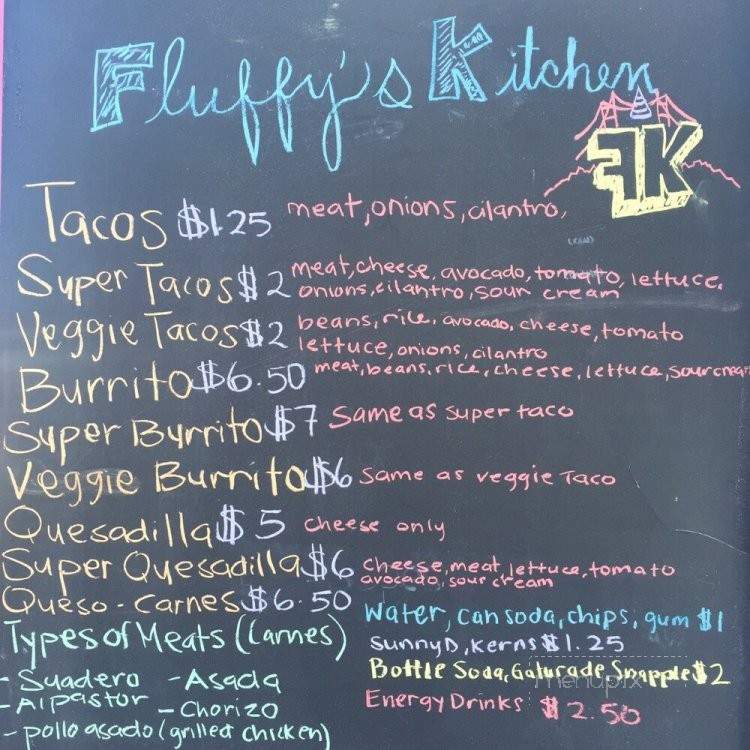 Fluffy's Kitchen
FK
Tacos $1.25 meat, onions, cilantro,
Super Tacos $2 meat, cheese, avocado, tomato, lettuce,
onions, cilantro, sour cream
Veggie Tacos $2 beans, rice, avocado, cheese, tomato
lettuce, onions, cilantro
Burrito $6.50 meat, beans, rice, cheese, lettuce, sour cream
Super Burrito $7 same as super taco
Veggie Burrito $6 same as veggie Taco
Quesadilla $5 cheese only
Super Quesadilla $6 cheese, meat, lettuce, tomato
avocado, sour cream
Queso-Carnes $6.50
Water, can soda, chips, gum $1
SunnyD, Kerns $1.25
Bottle Soda, Gaturade Snapple $2
Energy Drinks $2.50
Types of Meats (Carnes)
- Suadero - Asada
- Al pastor - Chorizo
- pollo asado (grilled chicken)
menupix